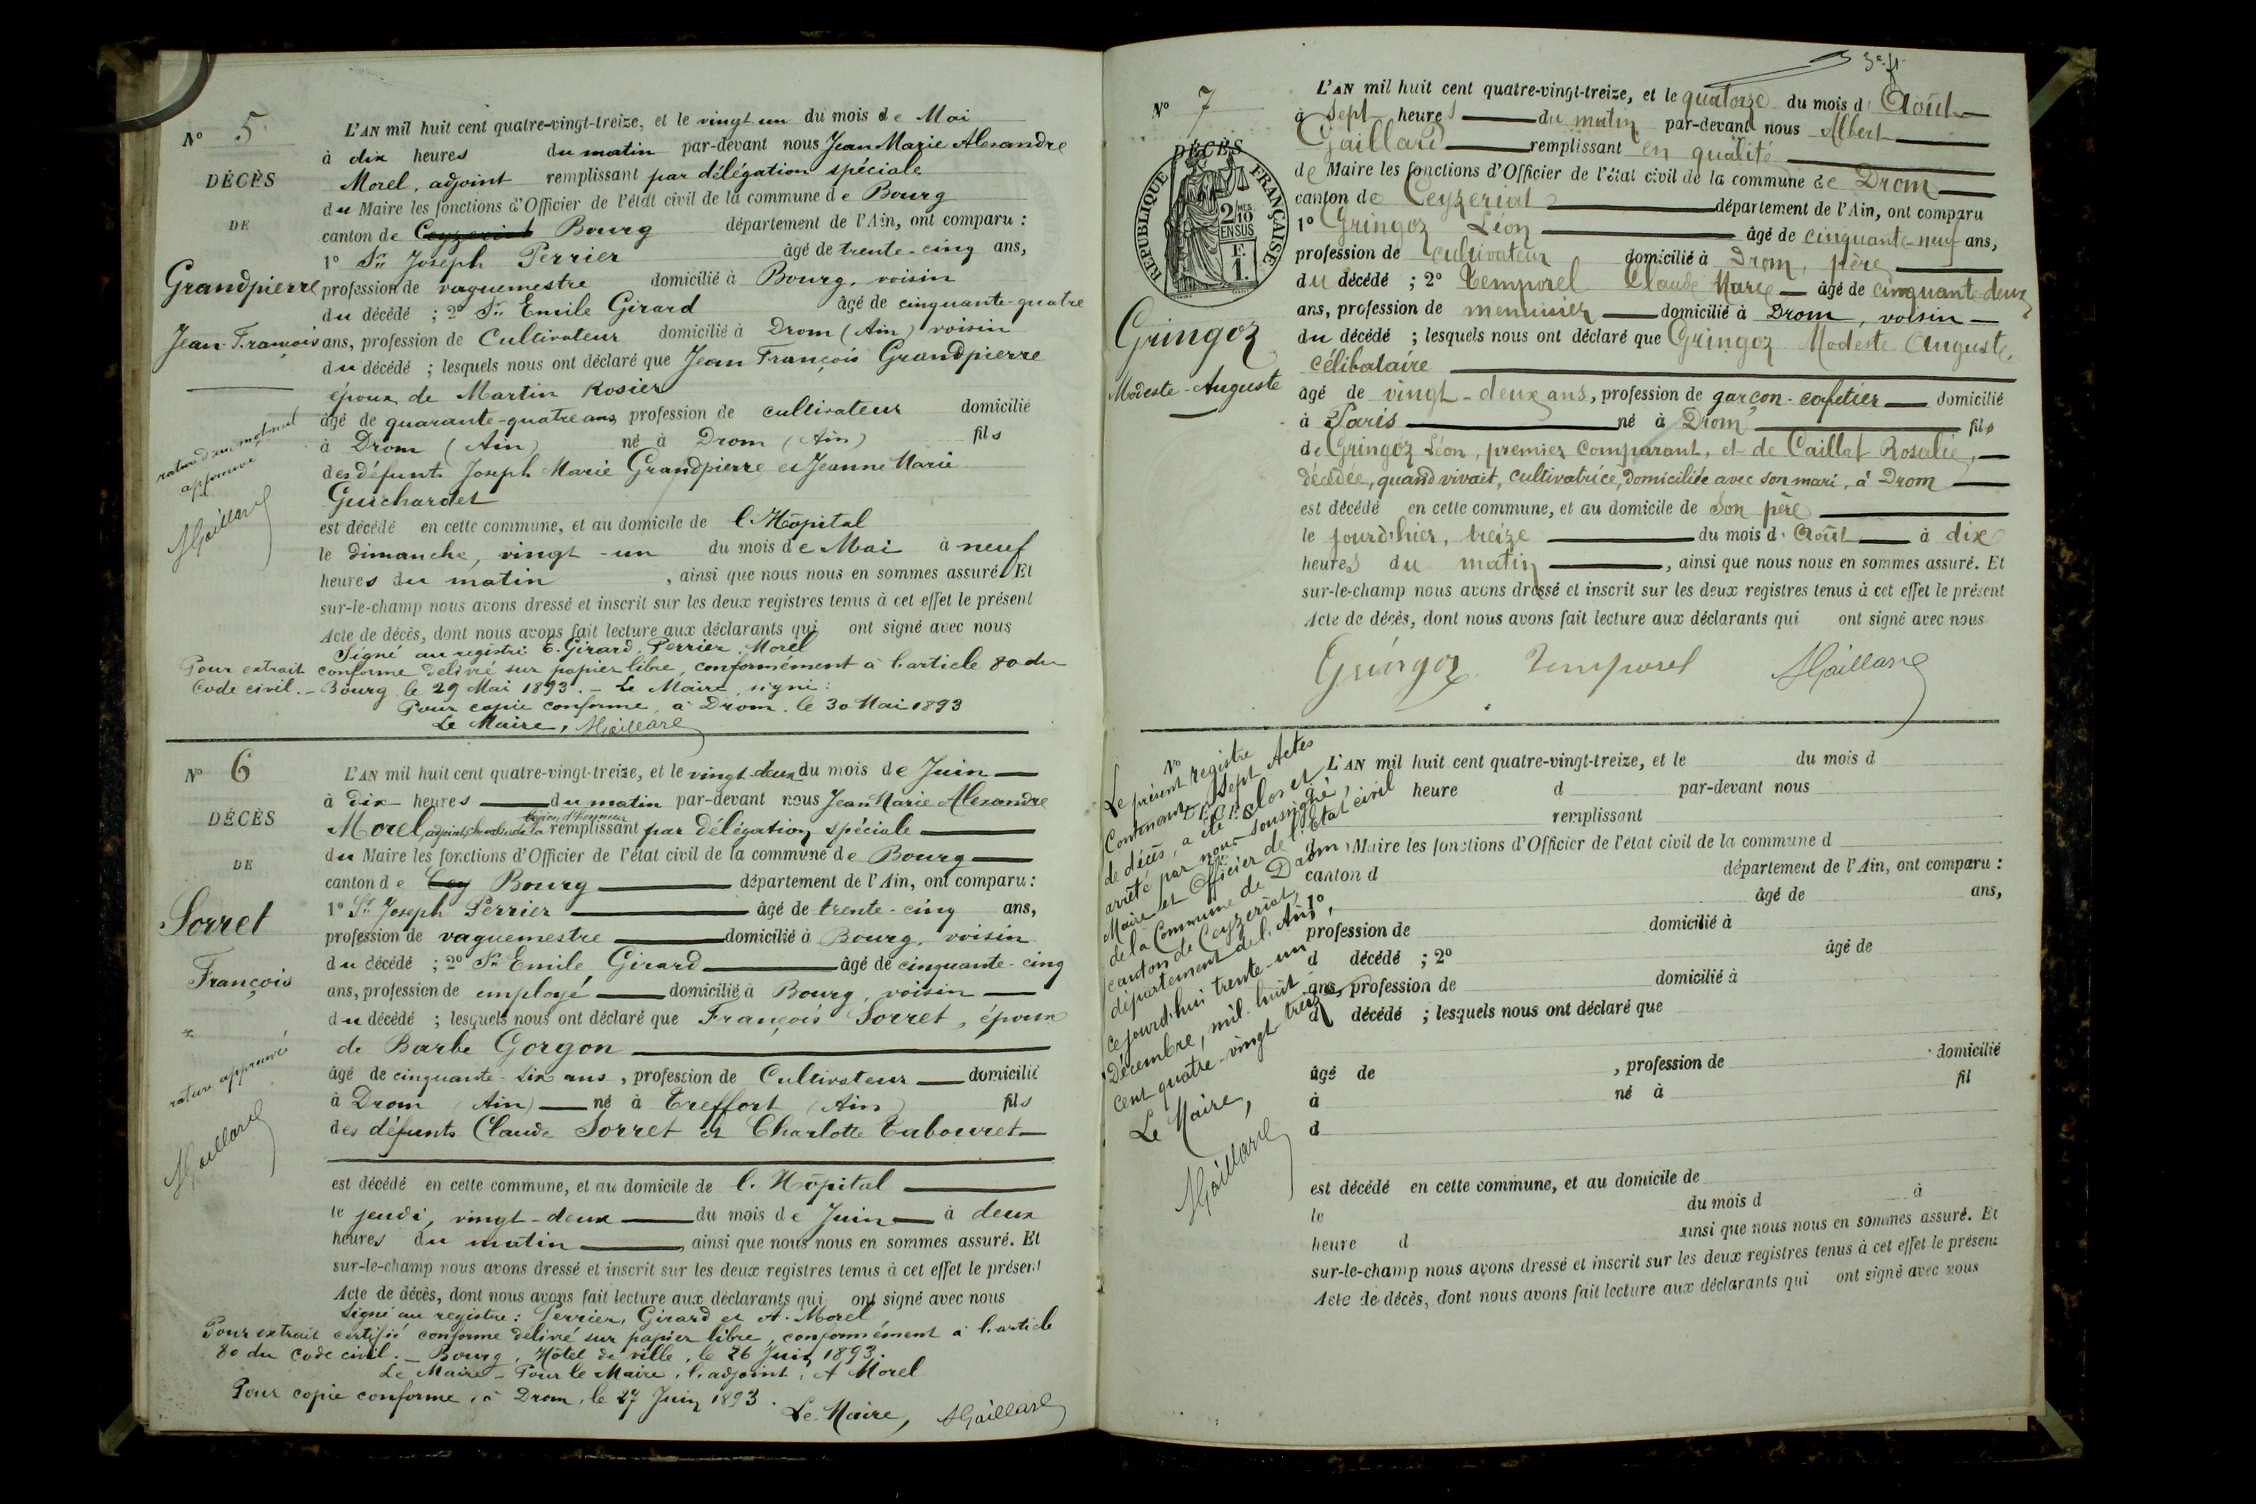 N° 5
DÉCÈS
DE
Grandpierre
Jean-François
rature d'un mot nul
approuvé
AGaillard
L'AN mil huit cent quatre-vingt-treize, et le vingt un du mois de Mai
à dix heures du matin par-devant nous Jean Marie Alexandre
Morel, adjoint remplissant par délégation spéciale
du Maire les fonctions d'Officier de l'état civil de la commune de Bourg
canton de Ceyzeriat Bourg département de l'Ain, ont comparu :
1° Sr Joseph Perrier âgé de trente-cinq ans,
profession de vaguemestre domicilié à Bourg, voisin
du décédé ; 2° Sr Emile Girard âgé de cinquante-quatre
ans, profession de Cultivateur domicilié à Drom (Ain) voisin
du décédé ; lesquels nous ont déclaré que Jean François Grandpierre
époux de Martin Rosier
âgé de quarante-quatre ans, profession de cultivateur domicilié
à Drom (Ain) né à Drom (Ain) fils
des défunts Joseph Marie Grandpierre et Jeanne Marie
Guichardet
est décédé en cette commune, et au domicile de l'Hôpital
le dimanche, vingt-un du mois de Mai à neuf
heures du matin, ainsi que nous nous en sommes assuré. Et
sur-le-champ nous avons dressé et inscrit sur les deux registres tenus à cet effet le présent
Acte de décès, dont nous avons fait lecture aux déclarants qui ont signé avec nous
Signé au registre: E. Girard, Perrier, Morel
Pour extrait conforme délivré sur papier libre, conformément à l'article 80 du
Code civil. – Bourg le 29 Mai 1893. – Le Maire, signé:
Pour copie conforme, à Drom, le 30 Mai 1893
Le Maire, AGaillard
N° 6
DÉCÈS
DE
Sorret
François
rature approuvée
AGaillard
L'AN mil huit cent quatre-vingt-treize, et le vingt-deux du mois de Juin
à dix heures du matin par-devant nous Jean Marie Alexandre
légion d'honneur
Morel, adjoint, chevalier de la remplissant par délégation spéciale
du Maire les fonctions d'Officier de l'état civil de la commune de Bourg
canton de Cey Bourg département de l'Ain, ont comparu :
1° Sr Joseph Perrier âgé de trente-cinq ans,
profession de vaguemestre domicilié à Bourg, voisin
du décédé ; 2° Sr Emile Girard âgé de cinquante-cinq
ans, profession de employé domicilié à Bourg, voisin
du décédé ; lesquels nous ont déclaré que François Sorret, époux
de Barbe Gorgon
âgé de cinquante-six ans, profession de Cultivateur domicilié
à Drom (Ain) né à Treffort (Ain) fils
des défunts Claude Sorret et Charlotte Tabouret
est décédé en cette commune, et au domicile de l'Hôpital
le jeudi, vingt-deux du mois de Juin à deux
heures du matin, ainsi que nous nous en sommes assuré. Et
sur-le-champ nous avons dressé et inscrit sur les deux registres tenus à cet effet le présent
Acte de décès, dont nous avons fait lecture aux déclarants qui ont signé avec nous
Signé au registre: Perrier, Girard et A. Morel
Pour extrait certifié conforme délivré sur papier libre, conformément à l'article
80 du Code civil. – Bourg, Hôtel de ville, le 26 Juin 1893.
Le Maire – Pour le Maire, l'adjoint, A Morel
Pour copie conforme, à Drom, le 27 Juin 1893.
Le Maire, AGaillard
N° 7
DÉCÈS
RÉPUBLIQUE FRANÇAISE
2/10 EN SUS
F. 1.
Gringoz
Modeste-Auguste
L'AN mil huit cent quatre-vingt-treize, et le quatorze du mois d'Août
à sept heures du matin par-devant nous Albert
Gaillard remplissant en qualité
de Maire les fonctions d'Officier de l'état civil de la commune de Drom
canton de Ceyzeriat département de l'Ain, ont comparu
1° Gringoz Léon âgé de cinquante-neuf ans,
profession de cultivateur domicilié à Drom, père
du décédé ; 2° Temporel Claude Marie âgé de cinquante-deux
ans, profession de menuisier domicilié à Drom, voisin
du décédé ; lesquels nous ont déclaré que Gringoz Modeste Auguste,
célibataire
âgé de vingt-deux ans, profession de garçon-cafetier domicilié
à Paris né à Drom fils
de Gringoz Léon, premier comparant, et de Caillat Rosalie,
décédée, quand vivait, cultivatrice, domiciliée avec son mari, à Drom
est décédé en cette commune, et au domicile de son père
le jourd'hier, treize du mois d'Août à dix
heures du matin, ainsi que nous nous en sommes assuré. Et
sur-le-champ nous avons dressé et inscrit sur les deux registres tenus à cet effet le présent
Acte de décès, dont nous avons fait lecture aux déclarants qui ont signé avec nous
Gringoz Temporel AGaillard
N°
DÉCÈS
Le présent registre
Contenant sept Actes
de décès, a été clos et
arrêté par nous soussigné,
Maire et Officier de l'Etat civil
de la Commune de Drom,
canton de Ceyzeriat,
département de l'Ain,
ce jourd'hui trente-un
Décembre, mil-huit
cent quatre-vingt-treize
Le Maire,
AGaillard
L'AN mil huit cent quatre-vingt-treize, et le du mois d
heure d par-devant nous
remplissant
Maire les fonctions d'Officier de l'état civil de la commune d
canton d département de l'Ain, ont comparu :
1° âgé de ans,
profession de domicilié à
d décédé ; 2° âgé de
ans, profession de domicilié à
d décédé ; lesquels nous ont déclaré que
âgé de , profession de domicilié
à né à fil
d
est décédé en cette commune, et au domicile de
le du mois d à
heure d ainsi que nous nous en sommes assuré. Et
sur-le-champ nous avons dressé et inscrit sur les deux registres tenus à cet effet le présent
Acte de décès, dont nous avons fait lecture aux déclarants qui ont signé avec nous